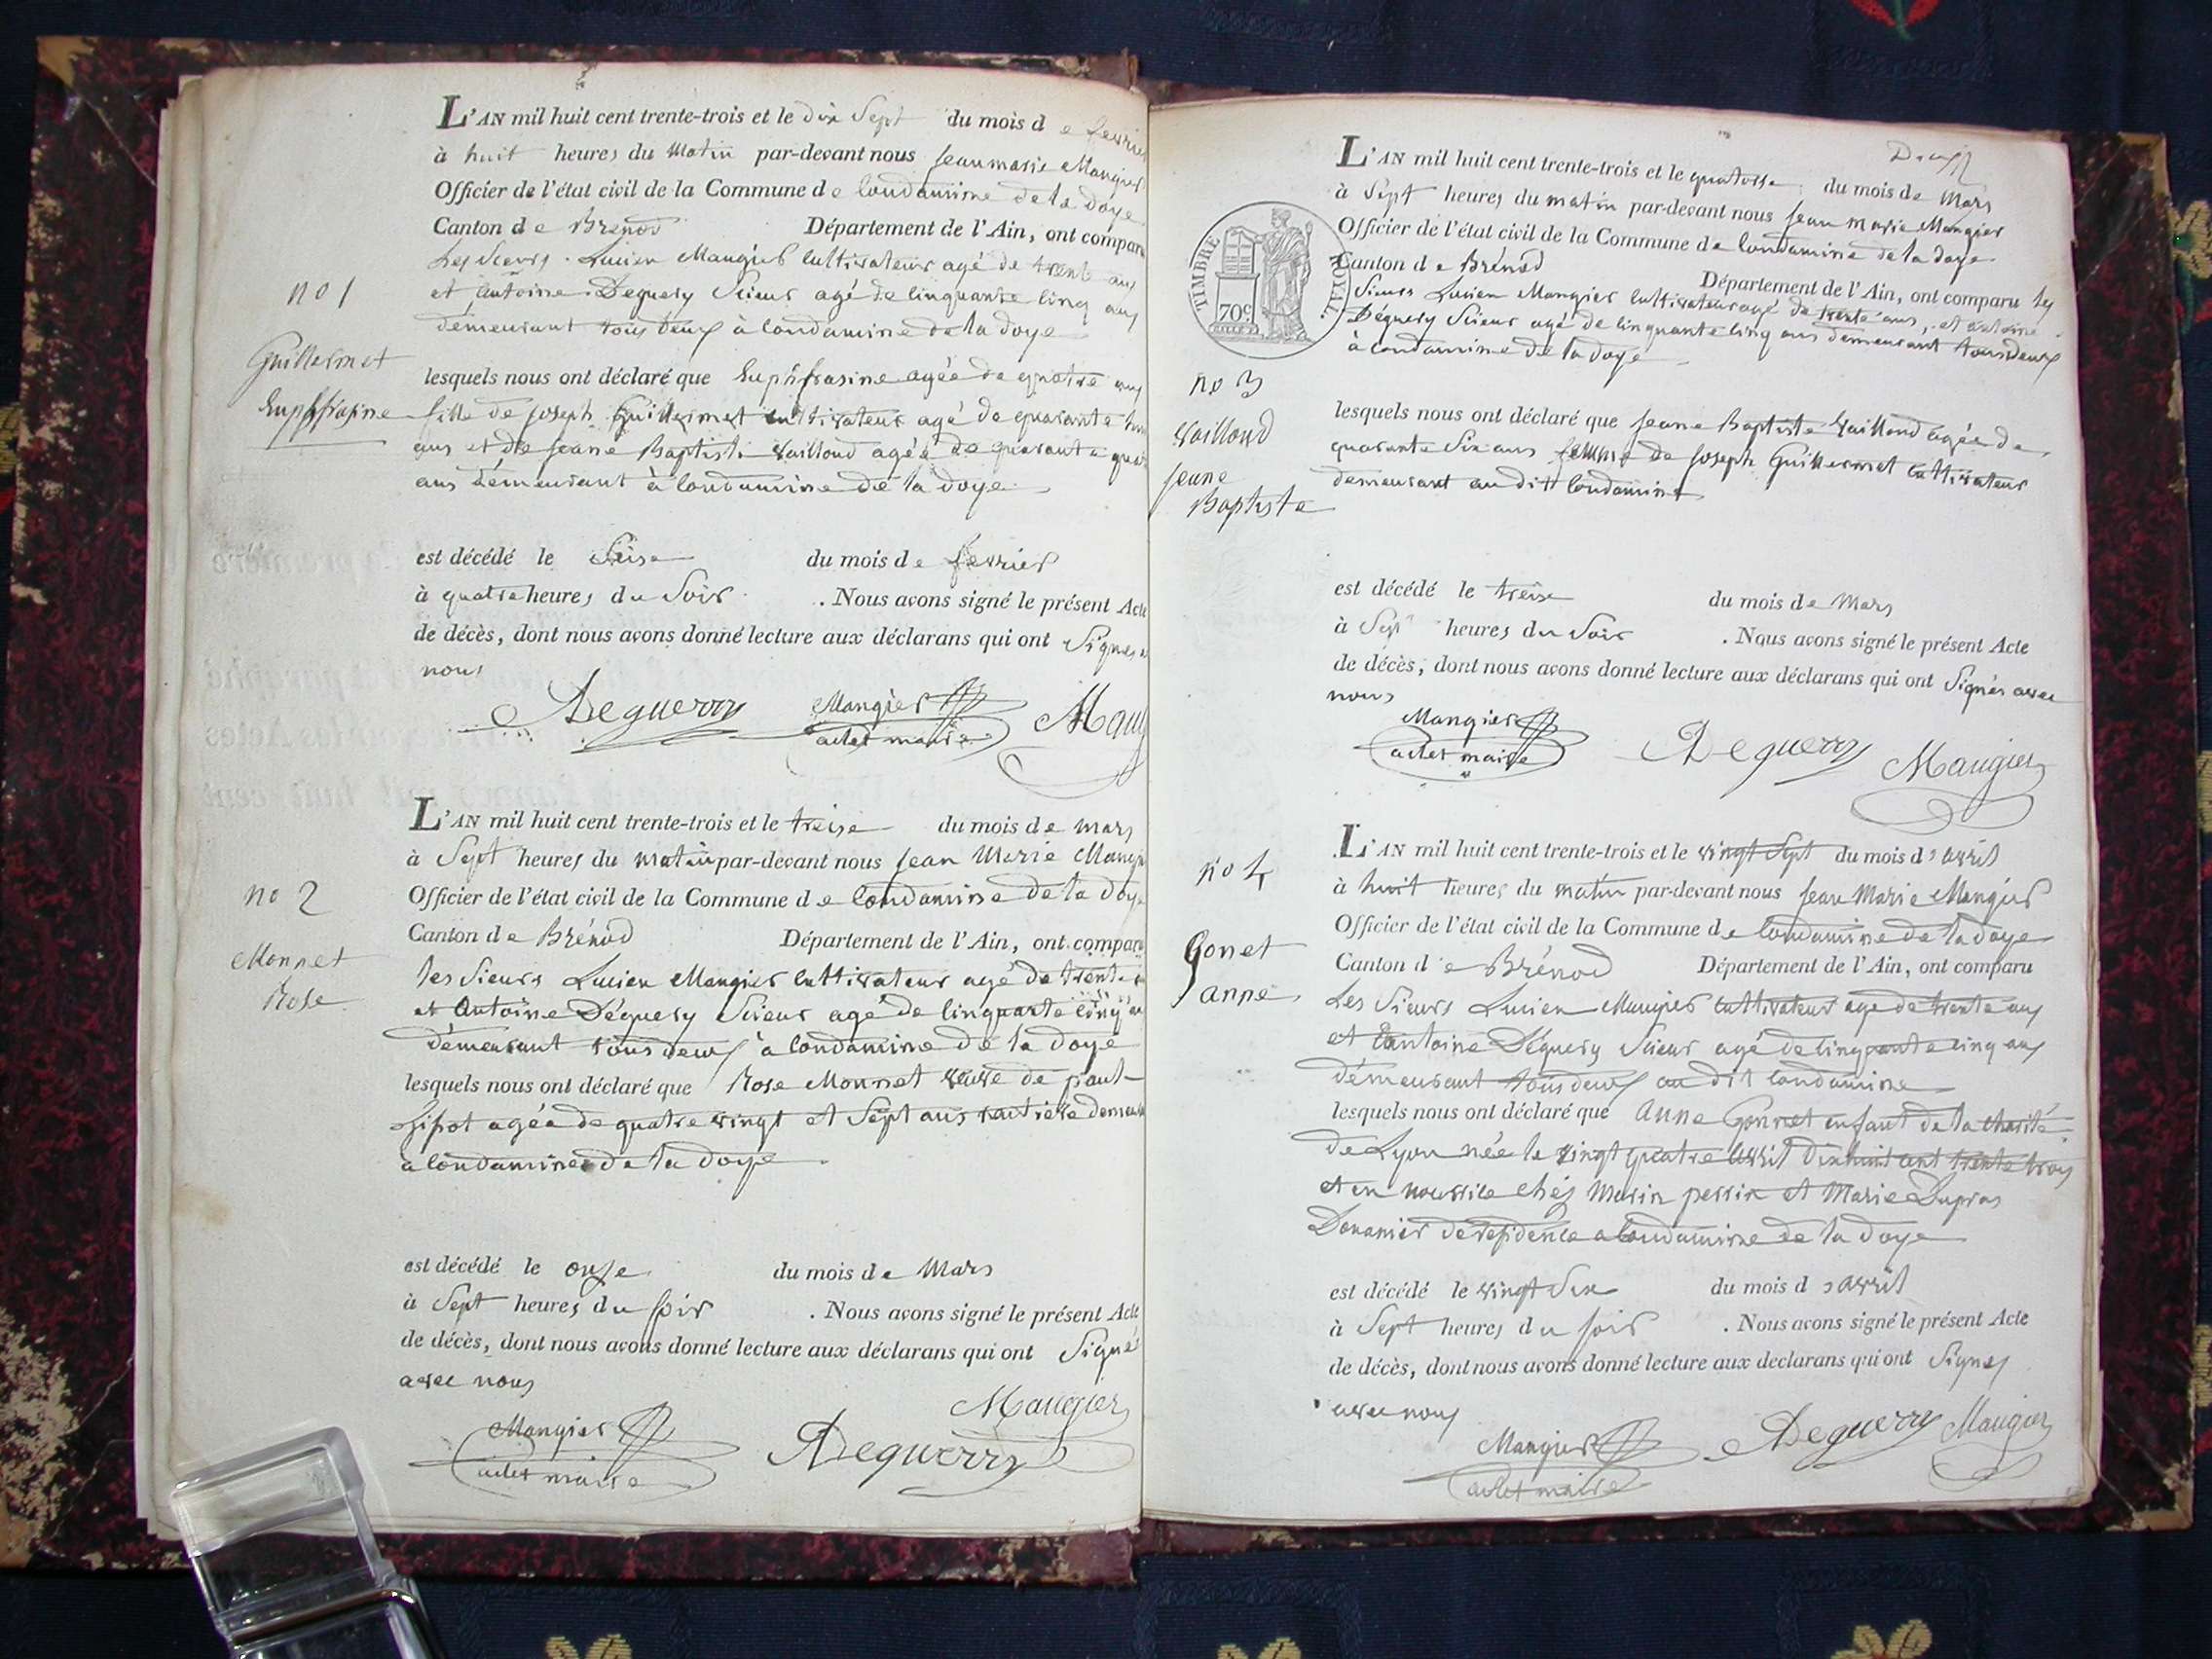 L'AN mil huit cent trente-trois et le dix Sept du mois de fevrier
à huit heures du Matin par-devant nous Jean marie Maugier
Officier de l'état civil de la Commune de Condamine de la doye
Canton de Brenod Département de l'Ain, ont comparu
Les Sieurs Lucien Maugier Cultivateur agé de trente ans
et Antoine Deguery Scieur agé de Cinquante Cinq ans
demeurant tous deux à Condamine de la doye
no 1
Guillermet
Euphrasine
lesquels nous ont déclaré que Euphrasine agée de quatre ans
fille de Joseph Guillermet cultivateur agé de quarante
ans et de Jeane Baptiste Vailloud agée de quarante
ans demeurant à Condamine de la doye
est décédé le Seise du mois de fevrier
à quatre heures du Soir . Nous avons signé le présent Acte
de décès, dont nous avons donné lecture aux déclarans qui ont Signés
nous
Deguerry Maugier Maug
adet maire
L'AN mil huit cent trente-trois et le treise du mois de mars
à Sept heures du matin par-devant nous Jean Marie Maugier
Officier de l'état civil de la Commune de Condamine de la doye
no 2
Monnet
Rose
Canton de Brénod Département de l'Ain, ont comparu
les Sieurs Lucien Maugier Cultivateur agé de trente
et Antoine Déguery Scieur agé de Cinquante Cinq ans
démeurant tous deux à Condamine de la doye
lesquels nous ont déclaré que Rose Monnet veuve de paul
agée de quatre vingt et Sept ans rentière
à Condamine de la doye
est décédé le onze du mois de Mars
à Sept heures du soir . Nous avons signé le présent Acte
de décès, dont nous avons donné lecture aux déclarans qui ont Signé
avec nous
Maugier
Maugier Deguerry
adet maire
L'AN mil huit cent trente-trois et le quatorse du mois de Mars
à Sept heures du matin par-devant nous Jean Marie Maugier
Officier de l'état civil de la Commune de Condamine de la doye
Canton de Brénod Département de l'Ain, ont comparu les
Sieurs Lucien Maugier Cultivateur agé de trente ans, et Antoine
Déguery Scieur agé de Cinquante Cinq ans demeurant tous deux
à Condamine de la doye
TIMBRE ROYAL
70c
no 3
Vailloud
Jeane
Baptiste
lesquels nous ont déclaré que Jeane Baptiste Vailloud agée de
quarante Six ans femme de Joseph Guillermet Cultivateur
demeurant au dit Condamine
est décédé le treise du mois de Mars
à Sept heures du Soir . Nous avons signé le présent Acte
de décès, dont nous avons donné lecture aux déclarans qui ont Signés avec
nous
Maugier Deguerry Maugier
adet maire
L'AN mil huit cent trente-trois et le vingt Sept du mois d'avril
à huit heures du matin par-devant nous Jean Marie Maugier
Officier de l'état civil de la Commune de Condamine de la doye
no 4
Gonet
anne
Canton de Brénod Département de l'Ain, ont comparu
Les Sieurs Lucien Maugier Cultivateur agé de trente ans
et Antoine Déguery Scieur agé de Cinquante Cinq ans
démeurant tous deux au dit Condamine
lesquels nous ont déclaré que Anne Gonnet enfant de la charité
de Lyon née le vingt quatre avril dix huit cent trente trois
et en nourrice chéz Marin perrin et Marie Dupras
Douanier de résidence a Condamine de la doye
est décédé le vingt Six du mois d'avril
à Sept heures du soir . Nous avons signé le présent Acte
de décès, dont nous avons donné lecture aux declarans qui ont Signés
avec nous
Maugier Deguerry Maugier
adet maire